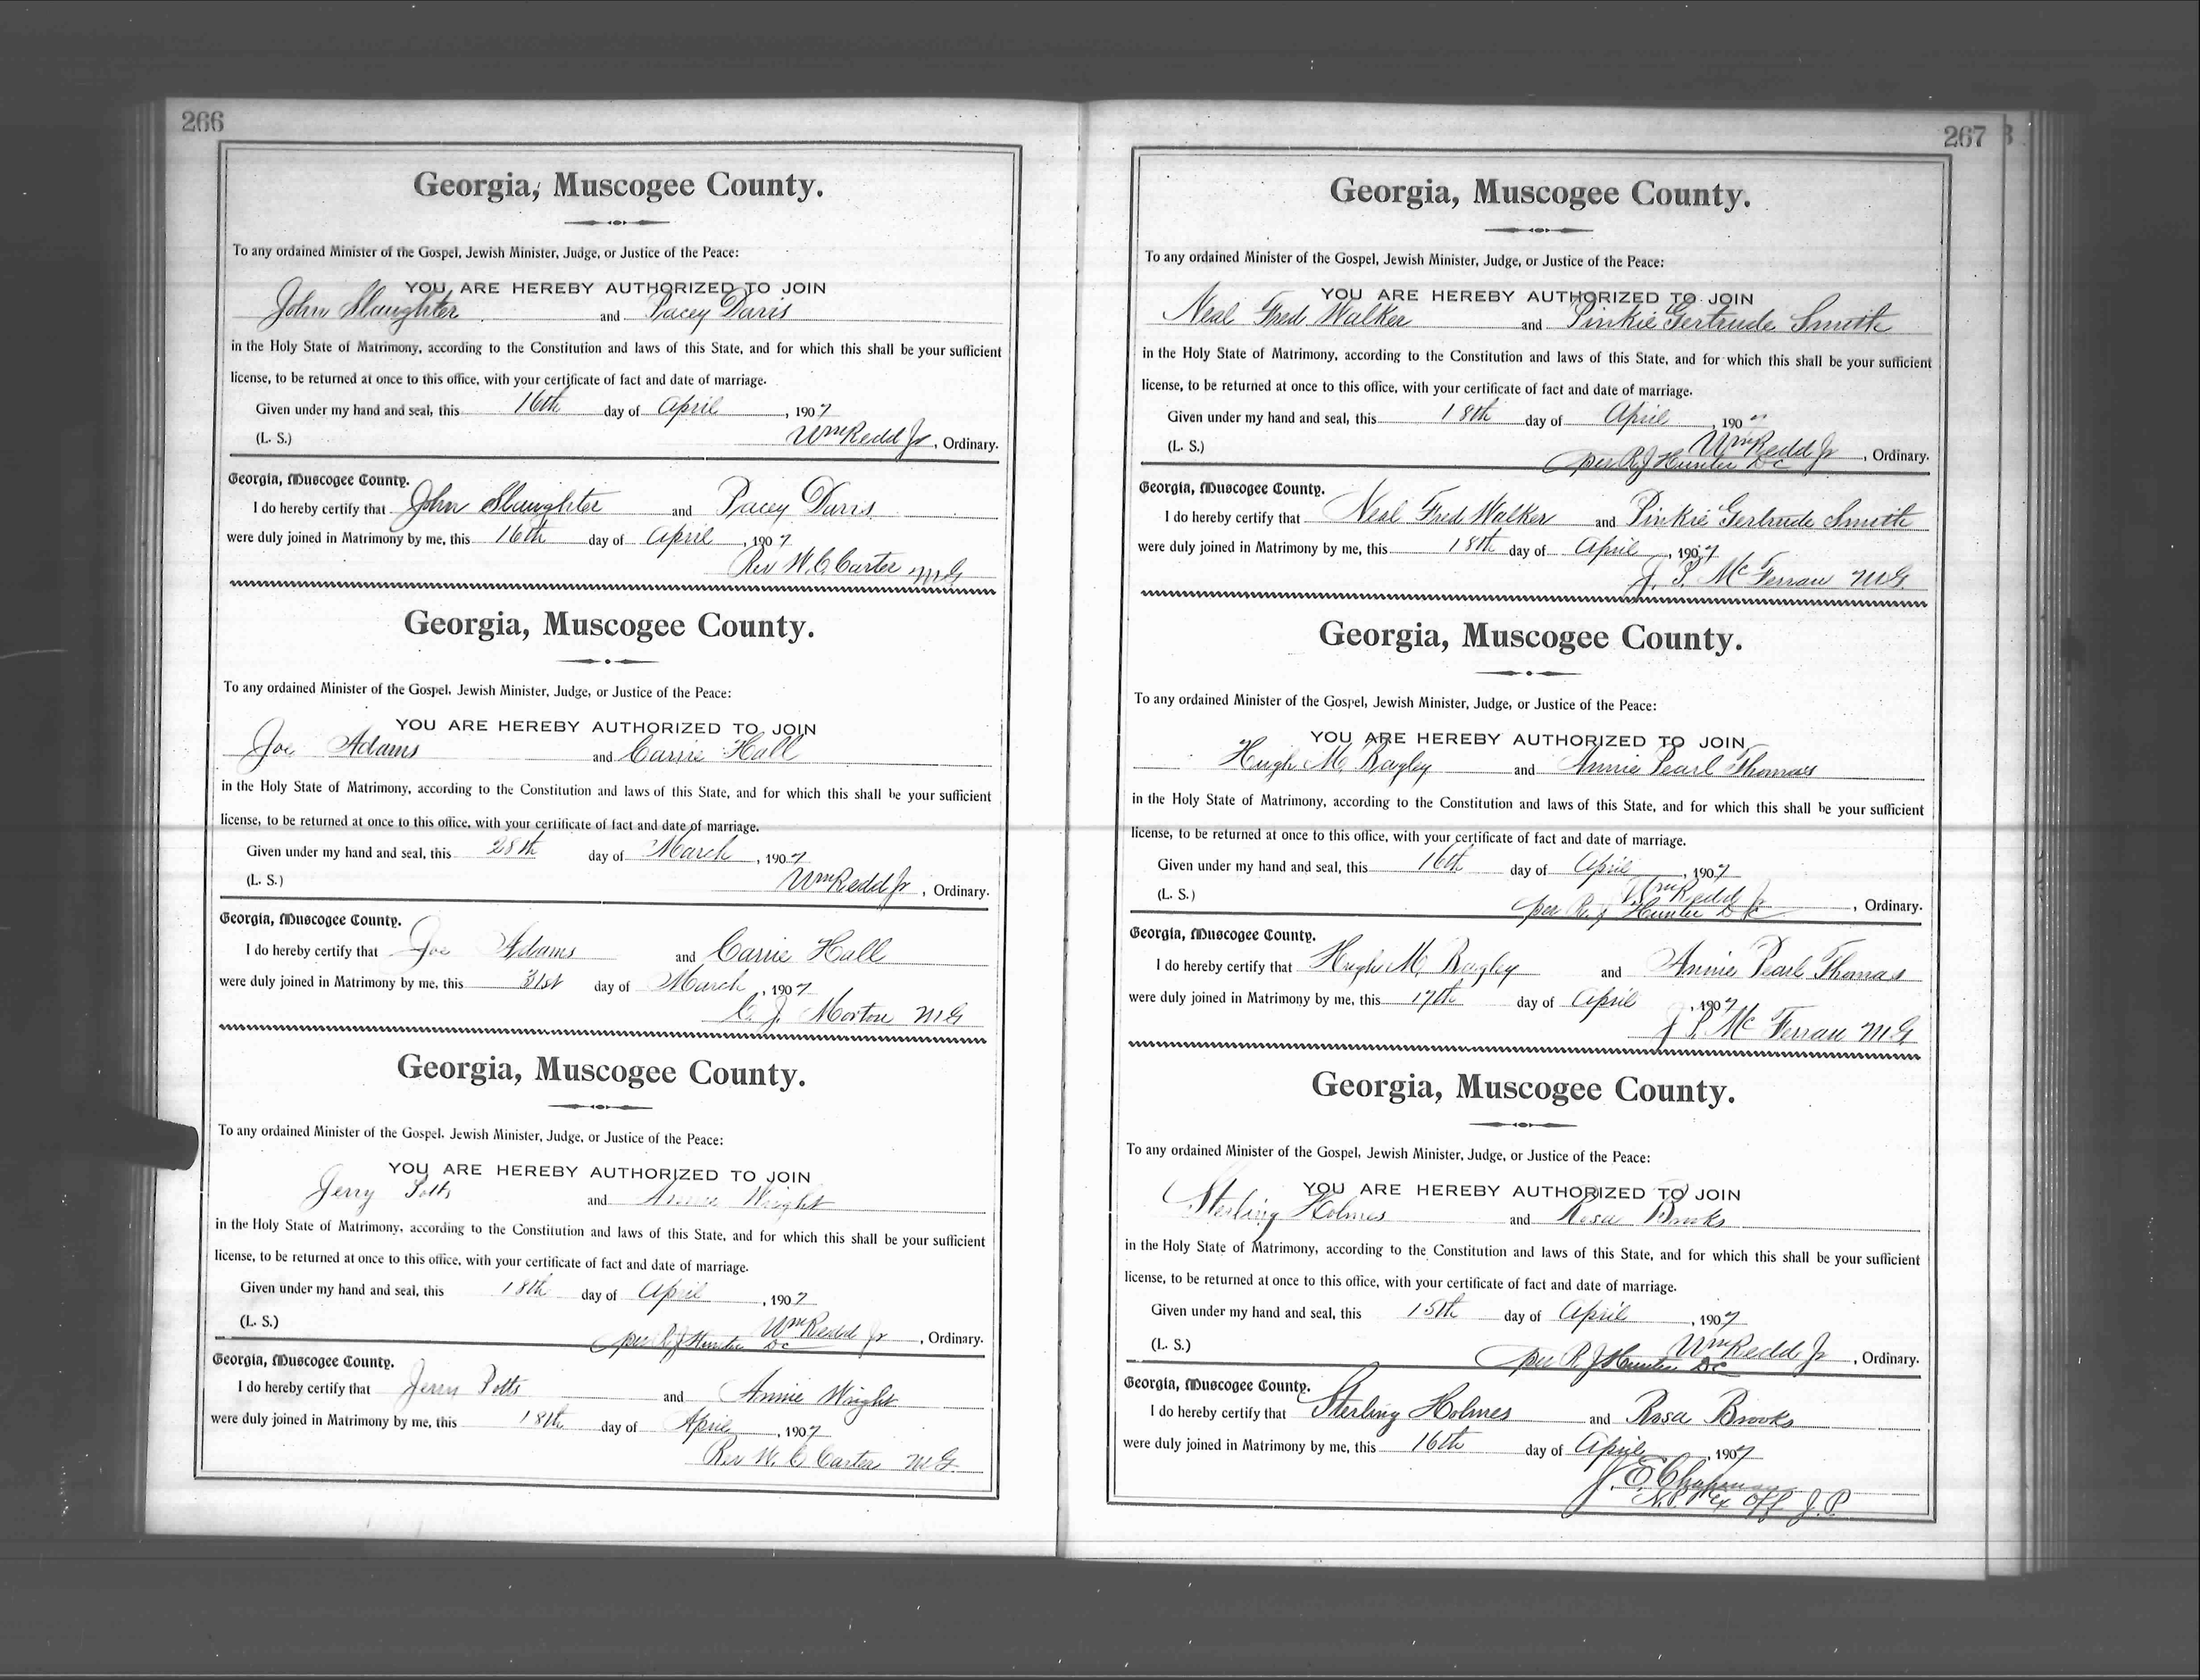 266
Georgia, Muscogee County.
To any ordained Minister of the Gospel, Jewish Minister, Judge, or Justice of the Peace:
YOU ARE HEREBY AUTHORIZED TO JOIN
John Slaughter and Pacey Davis
in the Holy State of Matrimony, according to the Constitution and laws of this State, and for which this shall be your sufficient
license, to be returned at once to this office, with your certificate of fact and date of marriage.
Given under my hand and seal, this 16th day of April, 1907
(L. S.) Wm Redd Jr, Ordinary.
Georgia, Muscogee County.
I do hereby certify that John Slaughter and Pacey Davis
were duly joined in Matrimony by me, this 16th day of April, 1907
Rev W. C. Carter M G
Georgia, Muscogee County.
To any ordained Minister of the Gospel, Jewish Minister, Judge, or Justice of the Peace:
YOU ARE HEREBY AUTHORIZED TO JOIN
Joe Adams and Carrie Hall
in the Holy State of Matrimony, according to the Constitution and laws of this State, and for which this shall be your sufficient
license, to be returned at once to this office, with your certificate of fact and date of marriage.
Given under my hand and seal, this 28th day of March, 1907
(L. S.) Wm Redd Jr, Ordinary.
Georgia, Muscogee County.
I do hereby certify that Joe Adams and Carrie Hall
were duly joined in Matrimony by me, this 31st day of March, 1907
C. J. Morton M G
Georgia, Muscogee County.
To any ordained Minister of the Gospel, Jewish Minister, Judge, or Justice of the Peace:
YOU ARE HEREBY AUTHORIZED TO JOIN
Jerry Potts and Annie Wright
in the Holy State of Matrimony, according to the Constitution and laws of this State, and for which this shall be your sufficient
license, to be returned at once to this office, with your certificate of fact and date of marriage.
Given under my hand and seal, this 18th day of April, 1907
(L. S.) Wm Redd Jr, Ordinary.
per R J Hunter DC
Georgia, Muscogee County.
I do hereby certify that Jerry Potts and Annie Wright
were duly joined in Matrimony by me, this 18th day of April, 1907
Rev W. C Carter M G.
267
Georgia, Muscogee County.
To any ordained Minister of the Gospel, Jewish Minister, Judge, or Justice of the Peace:
YOU ARE HEREBY AUTHORIZED TO JOIN
Neal Fred Walker and Pinkie Gertrude Smith
in the Holy State of Matrimony, according to the Constitution and laws of this State, and for which this shall be your sufficient
license, to be returned at once to this office, with your certificate of fact and date of marriage.
Given under my hand and seal, this 18th day of April, 1907
(L. S.) Wm Redd Jr, Ordinary.
per R J Hunter DC
Georgia, Muscogee County.
I do hereby certify that Neal Fred Walker and Pinkie Gertrude Smith
were duly joined in Matrimony by me, this 18th day of April, 1907
J. P. McFerran M G.
Georgia, Muscogee County.
To any ordained Minister of the Gospel, Jewish Minister, Judge, or Justice of the Peace:
YOU ARE HEREBY AUTHORIZED TO JOIN
Hugh M. Bagley and Annie Pearl Thomas
in the Holy State of Matrimony, according to the Constitution and laws of this State, and for which this shall be your sufficient
license, to be returned at once to this office, with your certificate of fact and date of marriage.
Given under my hand and seal, this 16th day of April, 1907
(L. S.) Wm Redd Jr, Ordinary.
per R. J Hunter DC
Georgia, Muscogee County.
I do hereby certify that Hugh M. Bagley and Annie Pearl Thomas
were duly joined in Matrimony by me, this 17th day of April, 1907
J P. McFerran M. G.
Georgia, Muscogee County.
To any ordained Minister of the Gospel, Jewish Minister, Judge, or Justice of the Peace:
YOU ARE HEREBY AUTHORIZED TO JOIN
Sterling Holmes and Rosa Brooks
in the Holy State of Matrimony, according to the Constitution and laws of this State, and for which this shall be your sufficient
license, to be returned at once to this office, with your certificate of fact and date of marriage.
Given under my hand and seal, this 15th day of April, 1907
(L. S.) Wm Redd Jr, Ordinary.
per R. J Hunter DC
Georgia, Muscogee County.
I do hereby certify that Sterling Holmes and Rosa Brooks
were duly joined in Matrimony by me, this 16th day of April, 1907
J. E Chapman
N. P Ex Off J. P.